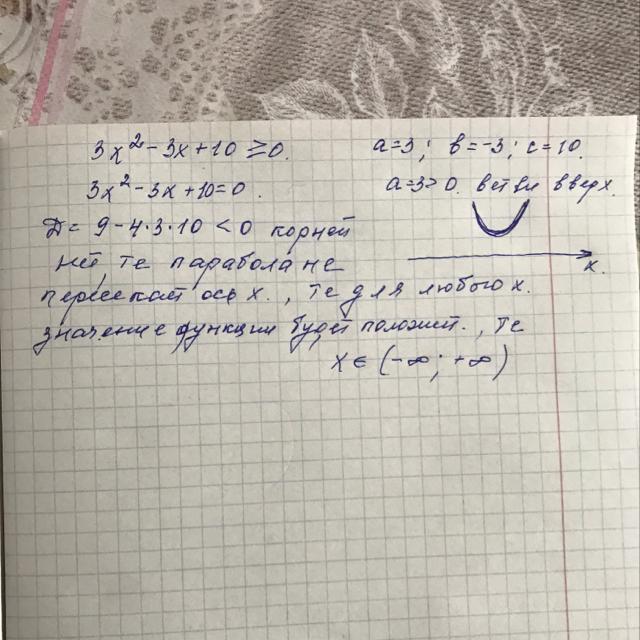 3x² - 3x + 10 ≥ 0.
a=3; в=-3; c=10.
3x² - 3x + 10 = 0.
a=3>0. ветви вверх.
Д = 9 - 4·3·10 < 0 корней
нет, те парабола не
x.
пересекат ось x., те для любого x.
значение функции будет положит., те
x ∈ (-∞; +∞)